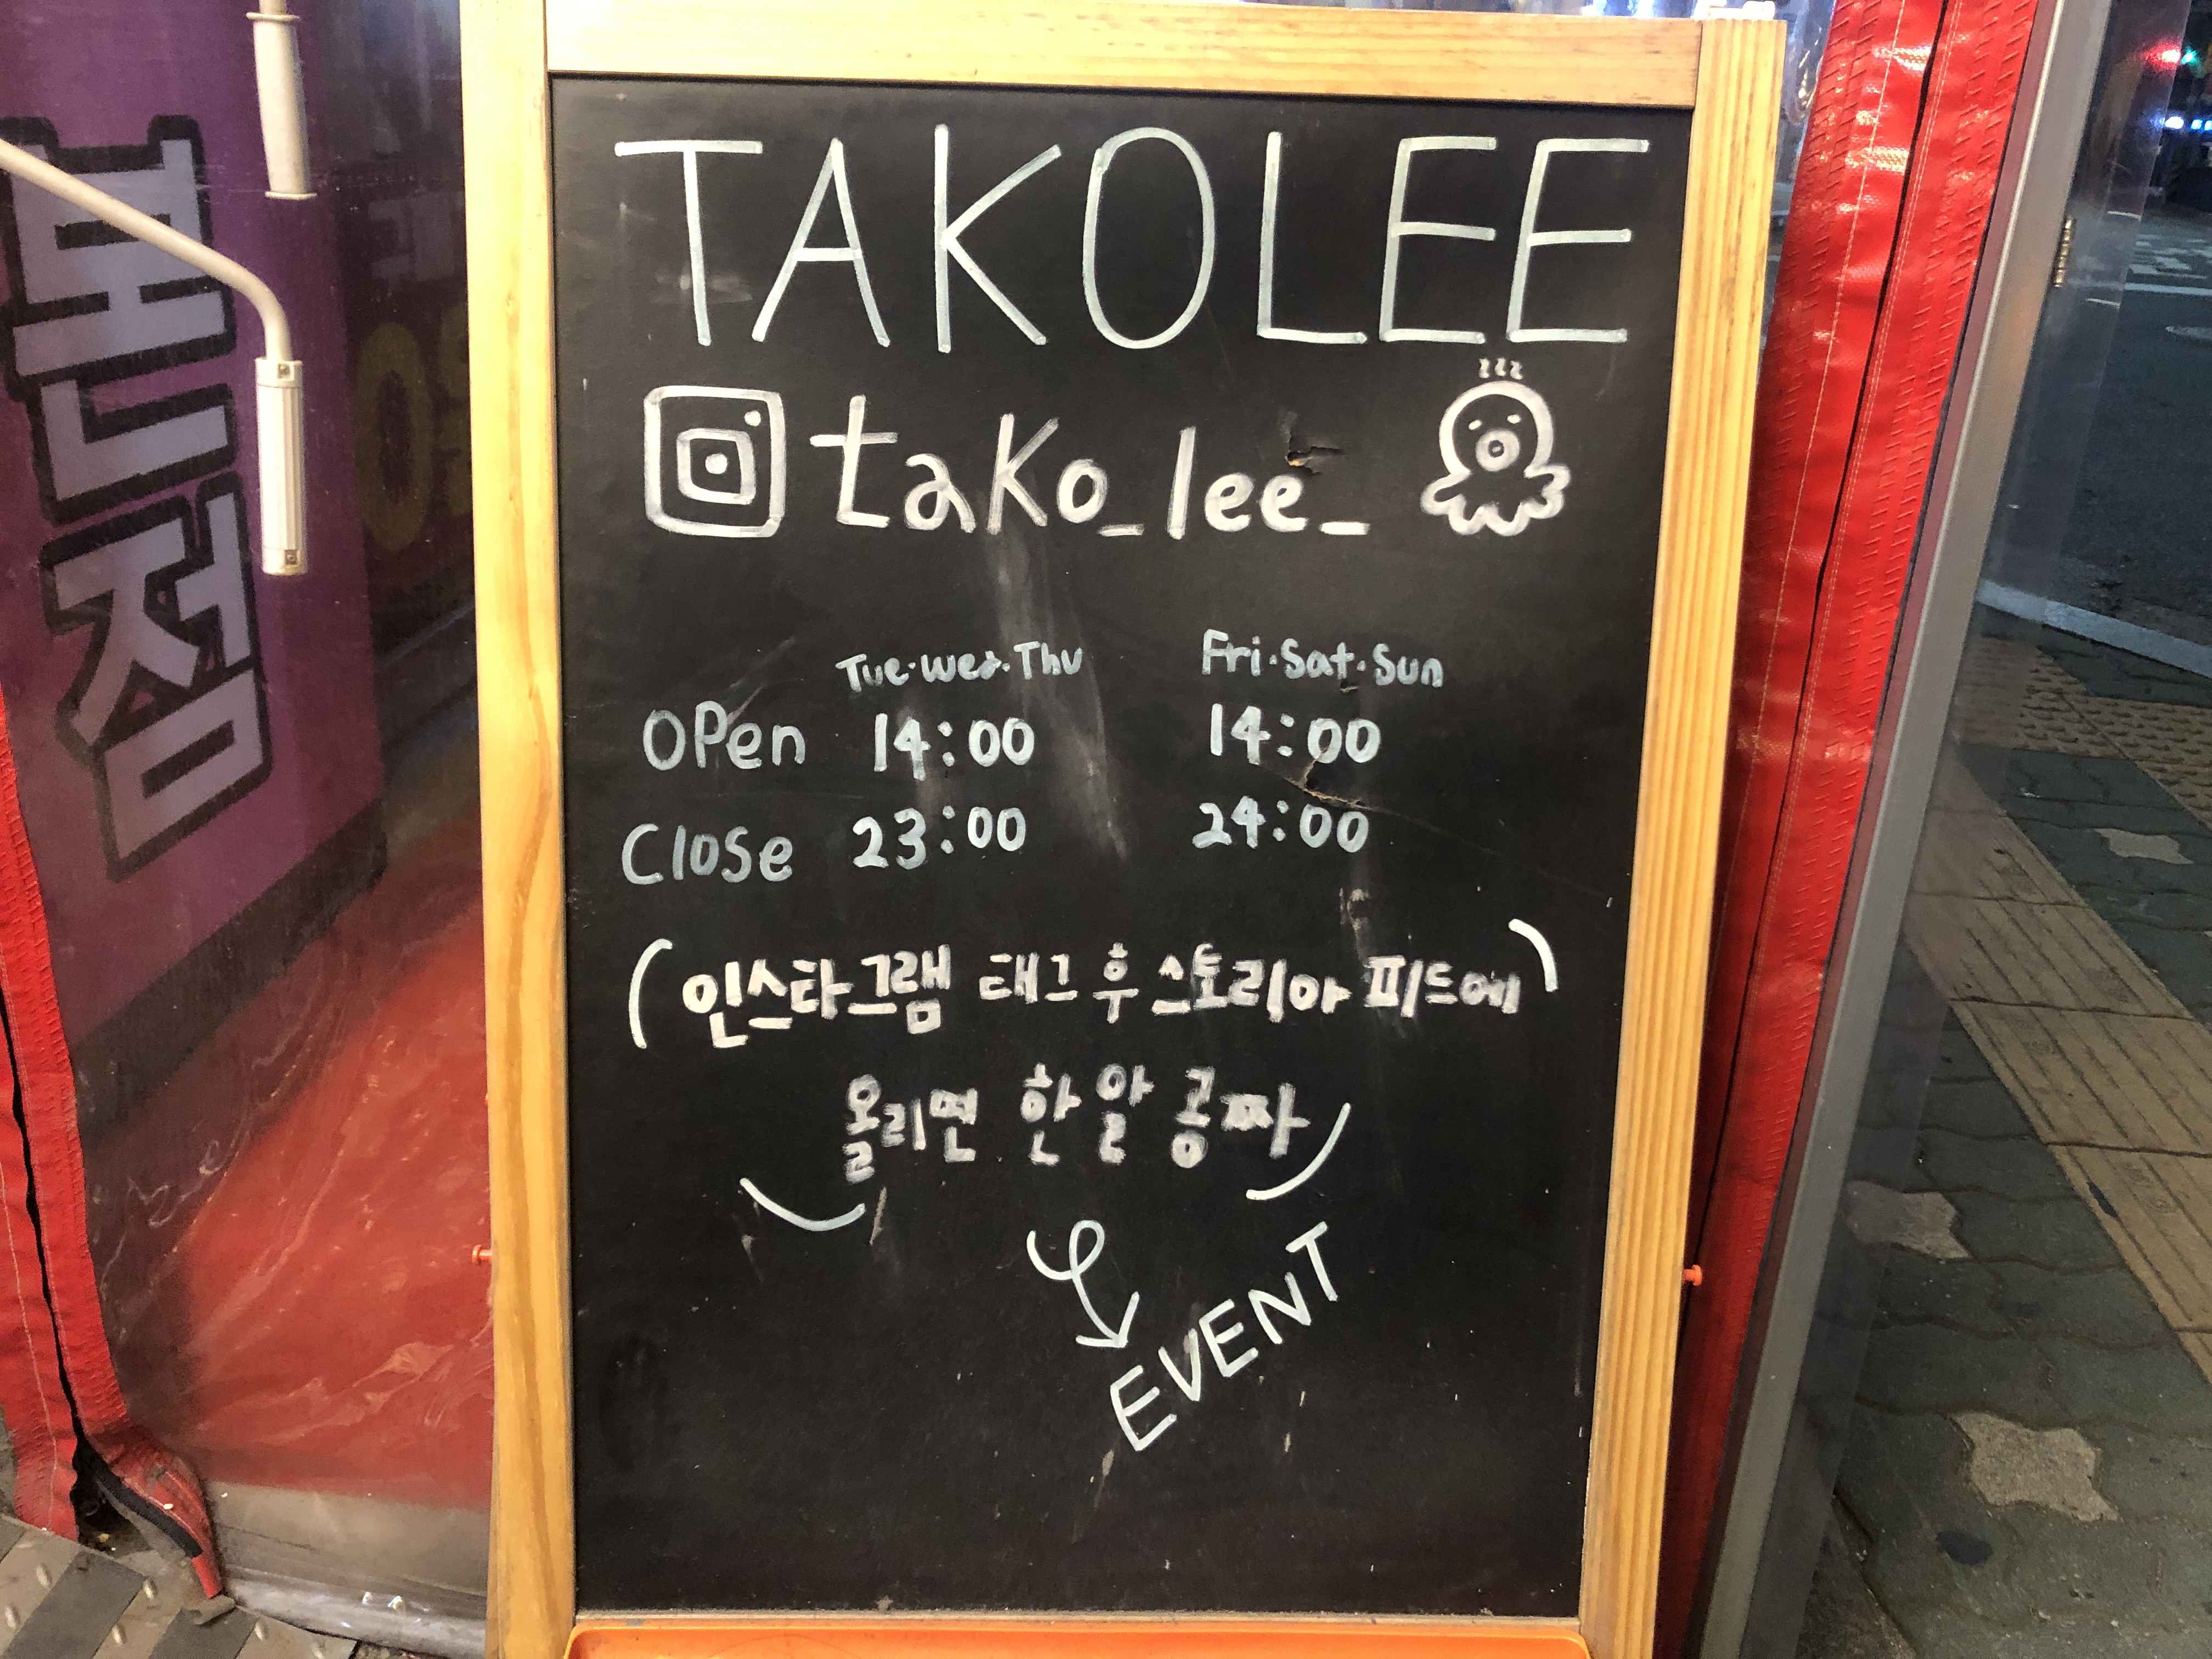 TAKOLEE
tako_lee_
Tue·Wed·Thu Fri·Sat·Sun
Open 14:00 14:00
Close 23:00 24:00
(인스타그램 태그 후 스토리아 피드에)
올리면 한 알 공짜
EVENT
분점